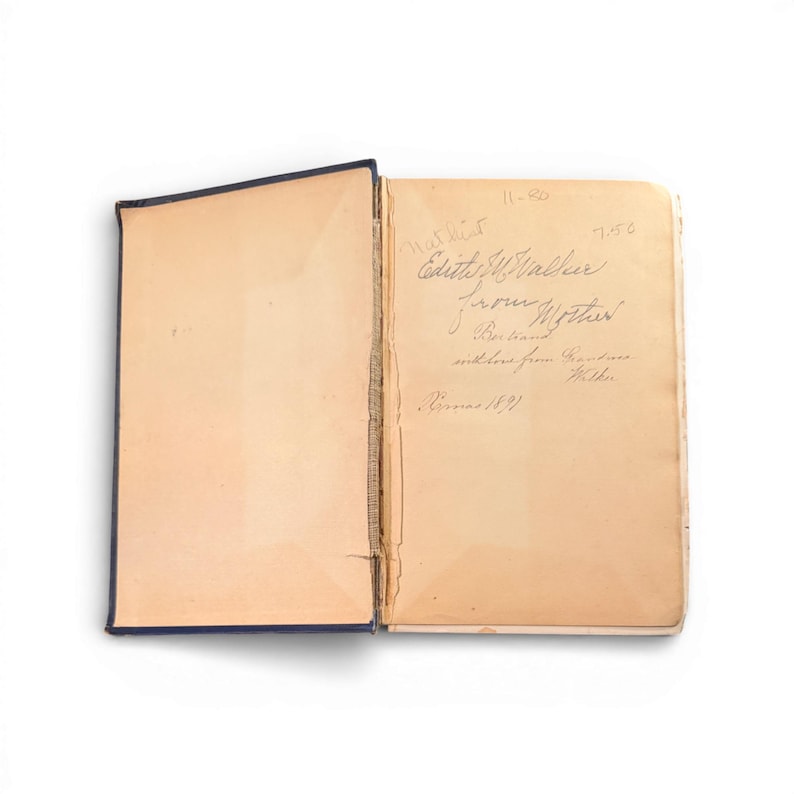 11-80
Nat hist
7.50
Edith M. Walker
from Mother
Bertrand
with love from Grandma
Walker
Xmas 1891